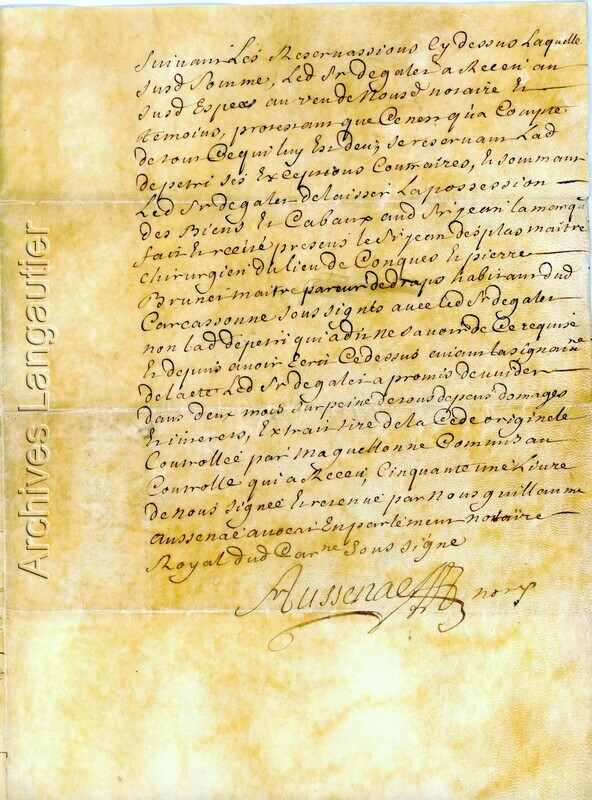 Suivant Les Reservassions Cy dessus Laquelle
Susd Somme, Led Sr degalet a Receu au
Susd Espees au veu de Nousd notaire Et
temoins, protestant que Ce nest qu'a Compte
de tout Ce qui luy Est deu, se reservant Lad
depetri ses Exceptions Contraires, Et sommant
Led Sr degalet delaisser La possession
des Biens Et Cabaux aud Sr jean lamarq
fait Et recité presens le Sr jean desplas maitre
Chirurgien du lieu de Conques Et pierre
Brunet maitre pareur de draps habitant dud
Carcassonne Sous signés avec led Sr degalet
non lad depetri qui a dit ne savoir de Ce requise
Et depuis avoir Ecrit Cedessus avant la signature
de lacte Led Sr degalet a promis de vuider
dans deux mois sur peine de tous depens domages
Et interets, Extrait tiré de la Cede originele
Controllée par Maguellonne Commis au
Controlle qui a Receu, Cinquante une Livre
de nous signée Et retenue par Nous guillaume
aussenac avocat En parlement notaire
Royal dud Carne Sous signé
Aussenac nore
Archives Langautier